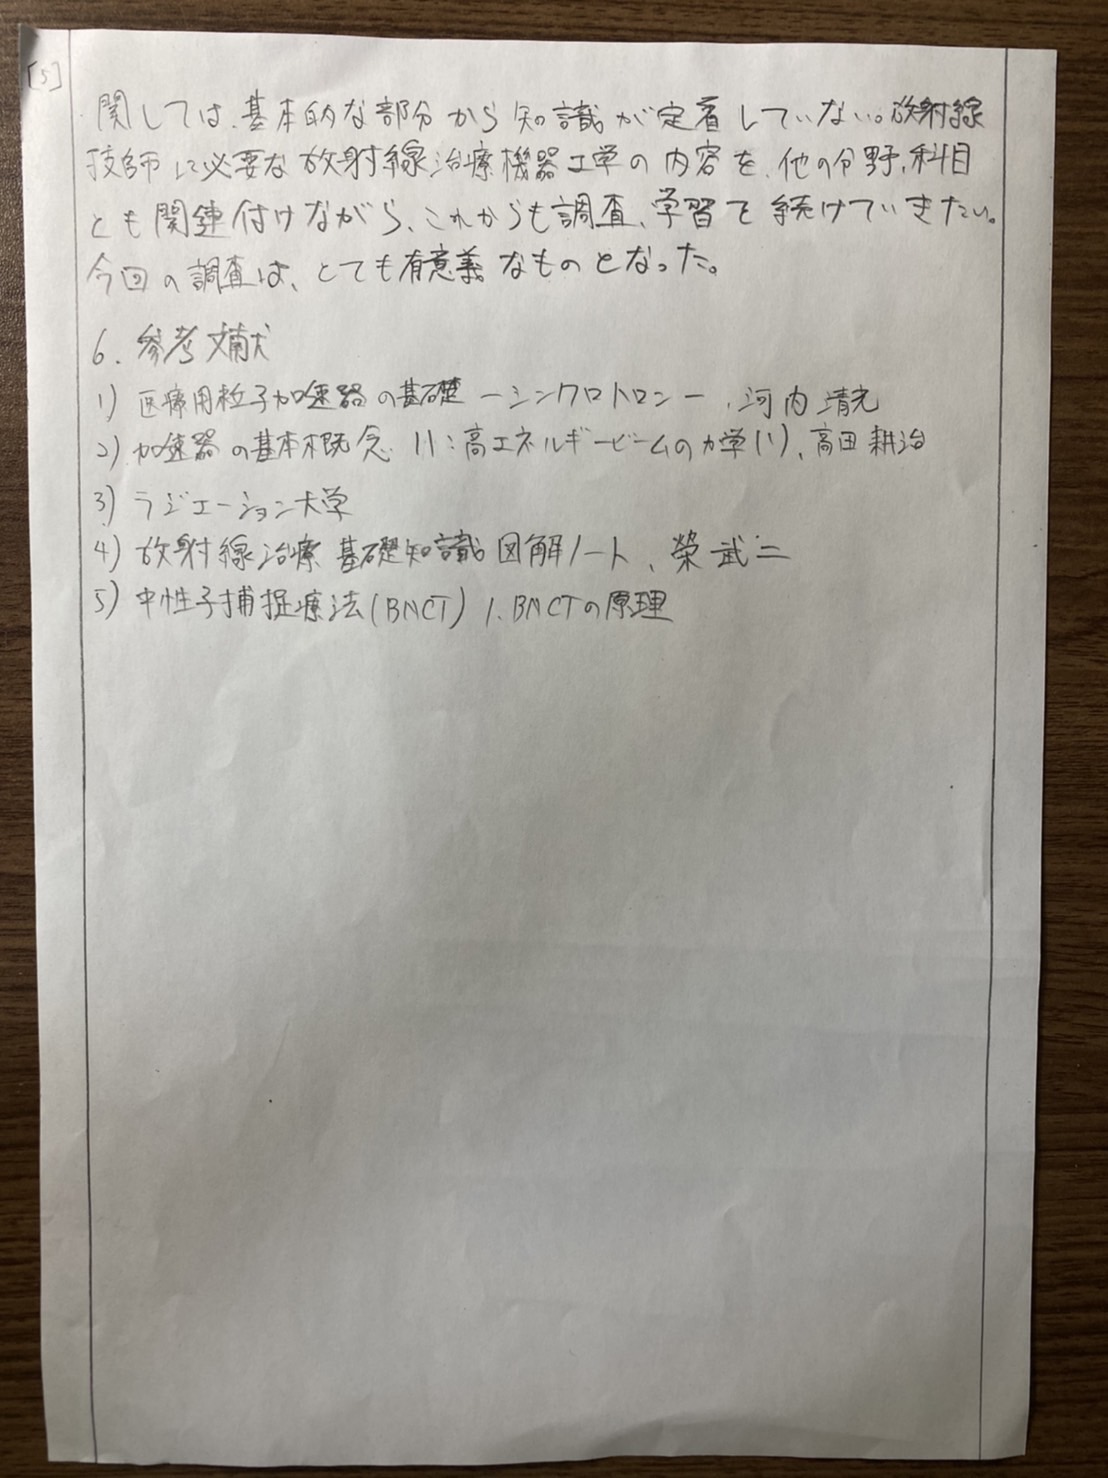 [5]
関しては、基本的な部分から知識が定着していない。放射線
技師に必要な放射線治療機器工学の内容を、他の分野、科目
とも関連付けながら、これからも調査、学習を続けていきたい。
今回の調査は、とても有意義なものとなった。
6. 参考文献
1) 医療用粒子加速器の基礎 ーシンクロトロンー、河内清光
2) 加速器の基本概念 (1:高エネルギービームの力学(1)、高田耕治
3) ラジエーション大学
4) 放射線治療 基礎知識図解ノート、榮 武二
5) 中性子捕捉療法(BNCT) 1. BNCTの原理